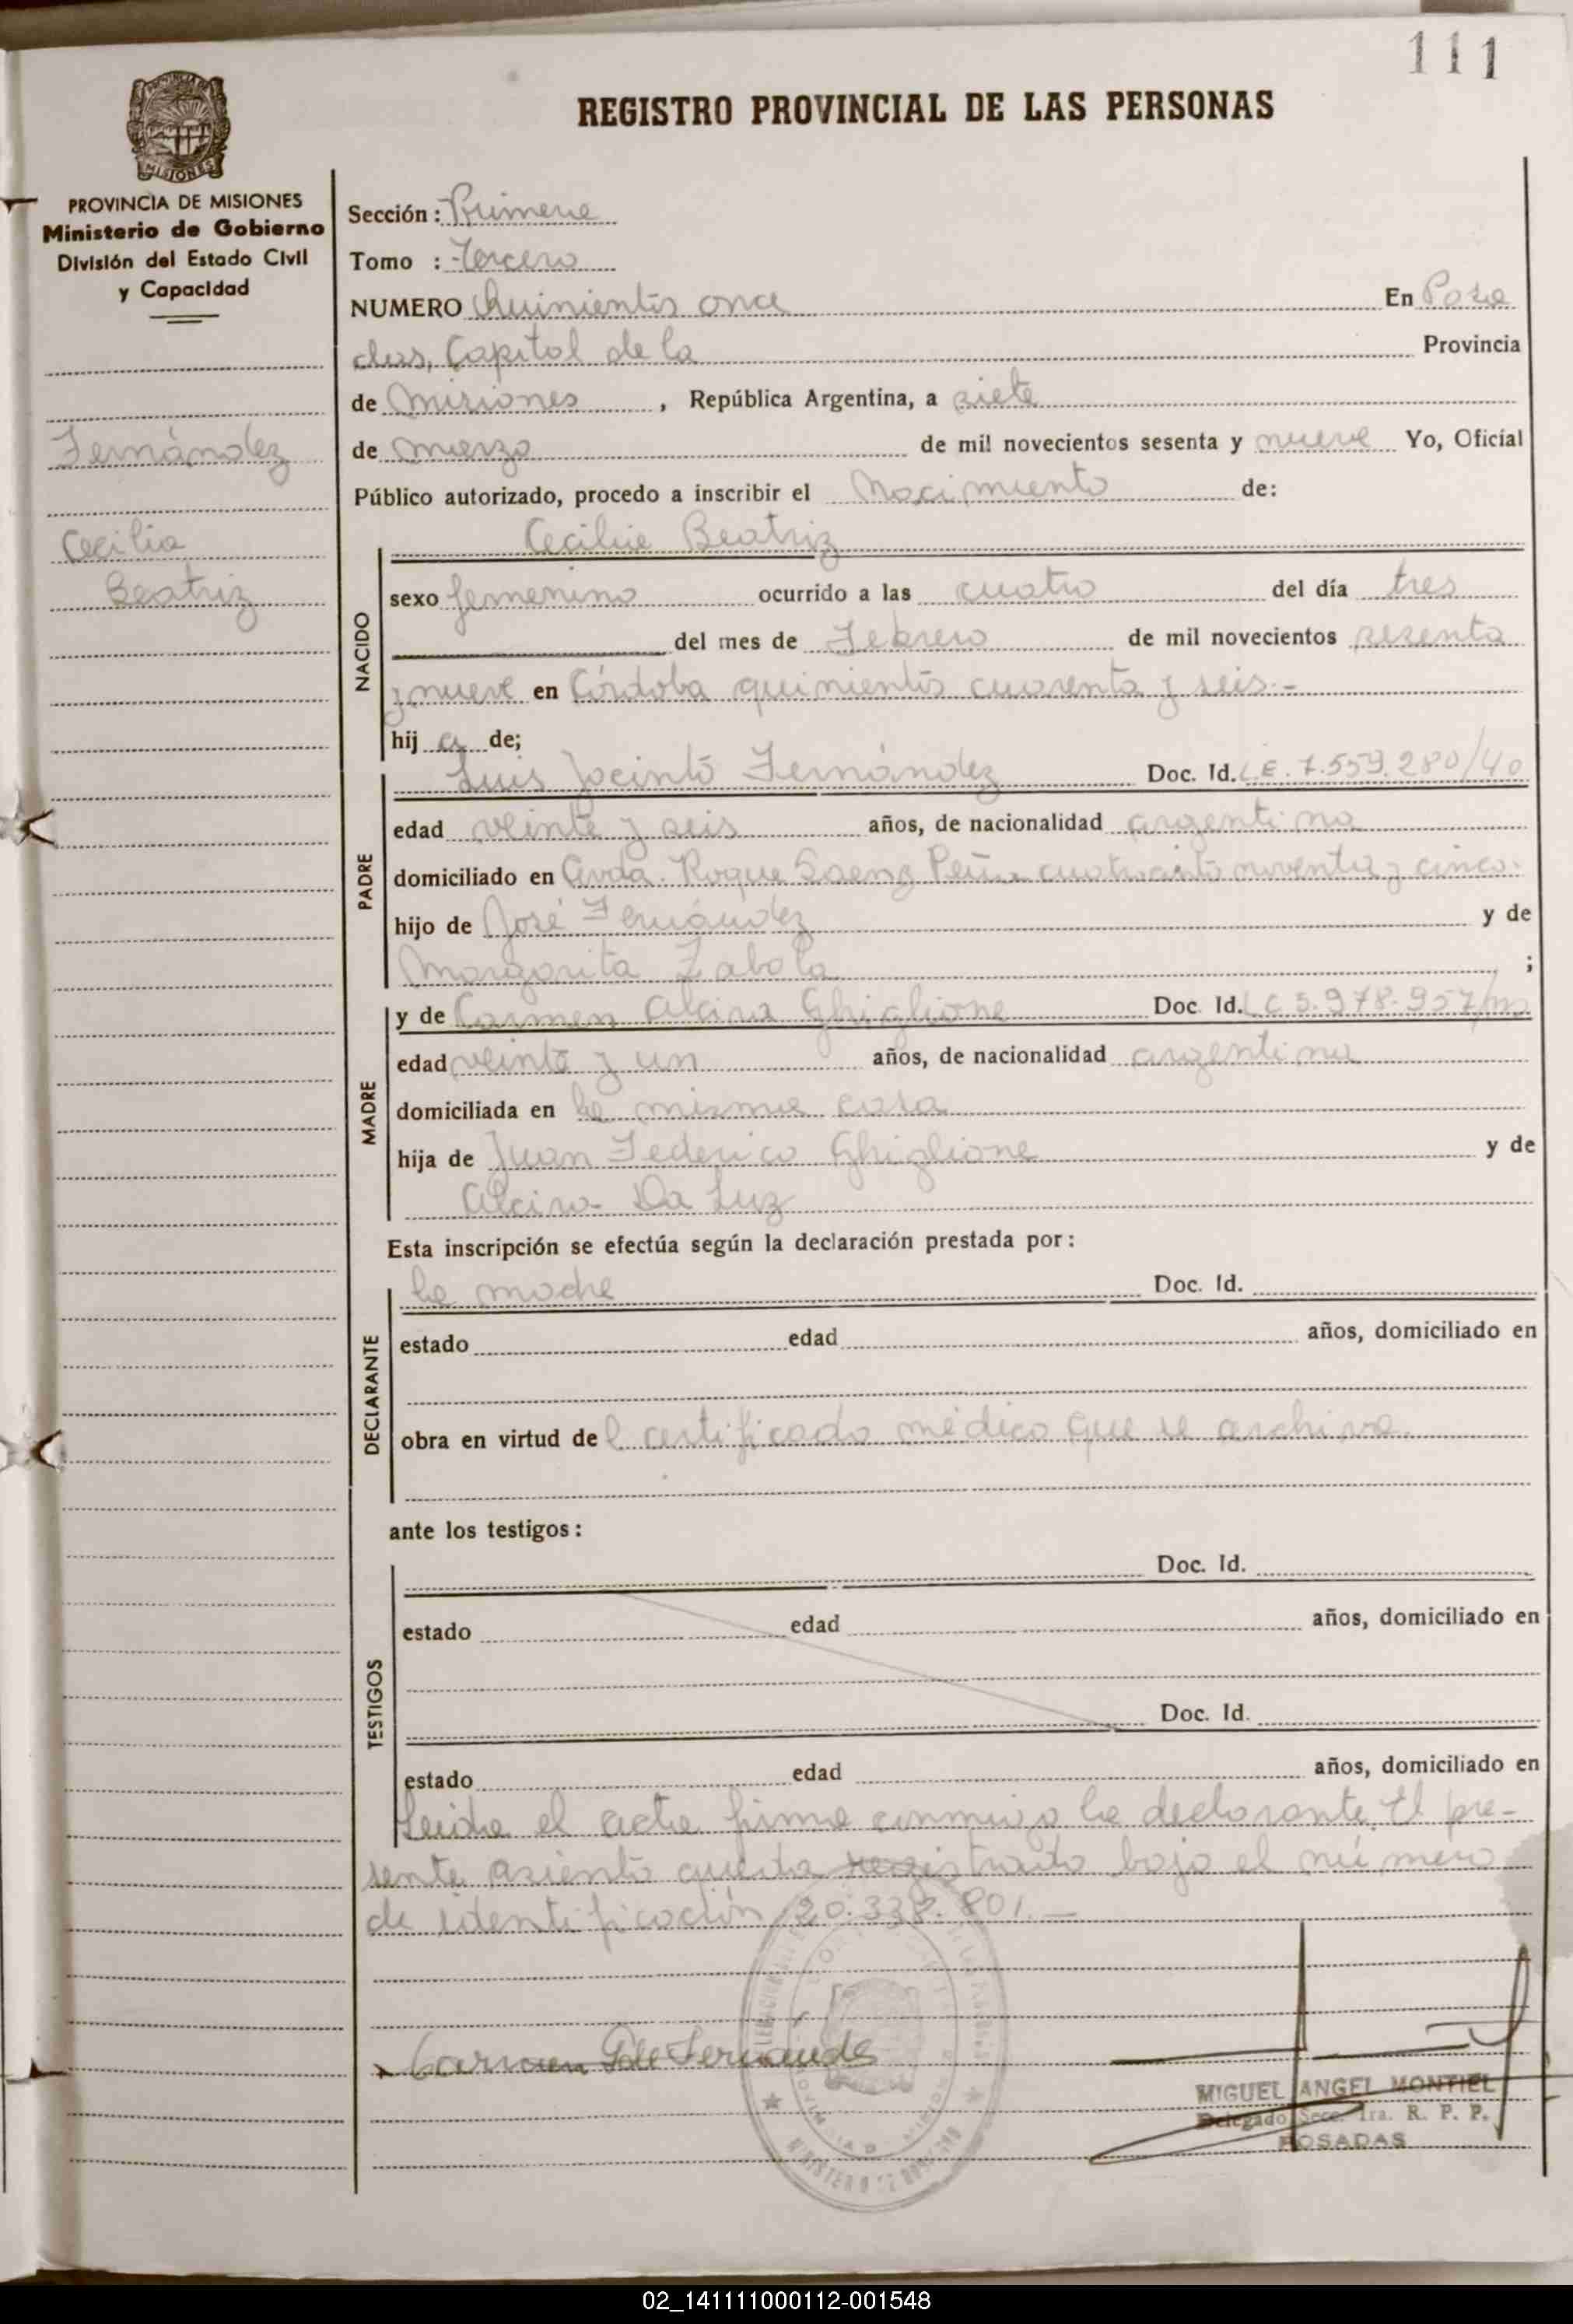 111
REGISTRO PROVINCIAL DE LAS PERSONAS
MISIONES
PROVINCIA DE MISIONES
Ministerio de Gobierno
División del Estado Civil
y Capacidad
Fernández
Cecilia
Beatriz
Sección: Primera
Tomo : Tercero
NUMERO Quinientos once En Posa
das, Capital de la Provincia
de Misiones, República Argentina, a siete
de marzo de mil novecientos sesenta y nueve Yo, Oficial
Público autorizado, procedo a inscribir el Nacimiento de:
NACIDO
Cecilia Beatriz
sexo femenino ocurrido a las cuatro del día tres
del mes de Febrero de mil novecientos sesenta
y nueve en Córdoba quinientos cuarenta y seis.-
hij a de;
PADRE
Luis Jacinto Fernández Doc. Id. L.E. 7.559.280/40
edad veinte y seis años, de nacionalidad argentina
domiciliado en Avda. Roque Saenz Peña cuatrocientos noventa y cinco.
hijo de José Fernández y de
Margarita Zabola ;
MADRE
y de Carmen Alcira Ghiglione Doc. Id. L C 5.978.957/
edad veinte y un años, de nacionalidad argentina
domiciliada en la misma casa
hija de Juan Federico Ghiglione y de
Alcira Da Luz
Esta inscripción se efectúa según la declaración prestada por:
DECLARANTE
la madre Doc. Id.
estado edad años, domiciliado en
obra en virtud del certificado médico que se archiva.
ante los testigos:
TESTIGOS
Doc. Id.
estado edad años, domiciliado en
Doc. Id.
estado edad años, domiciliado en
Leida el acta firma conmigo la declarante. El pre-
sente asiento queda registrado bajo el número
de identificación 20.338.801.-
Carmen G de Fernández
MIGUEL ANGEL MONTIEL
Delegado Secc. 1ra. R. P. P.
POSADAS
02_141111000112-001548